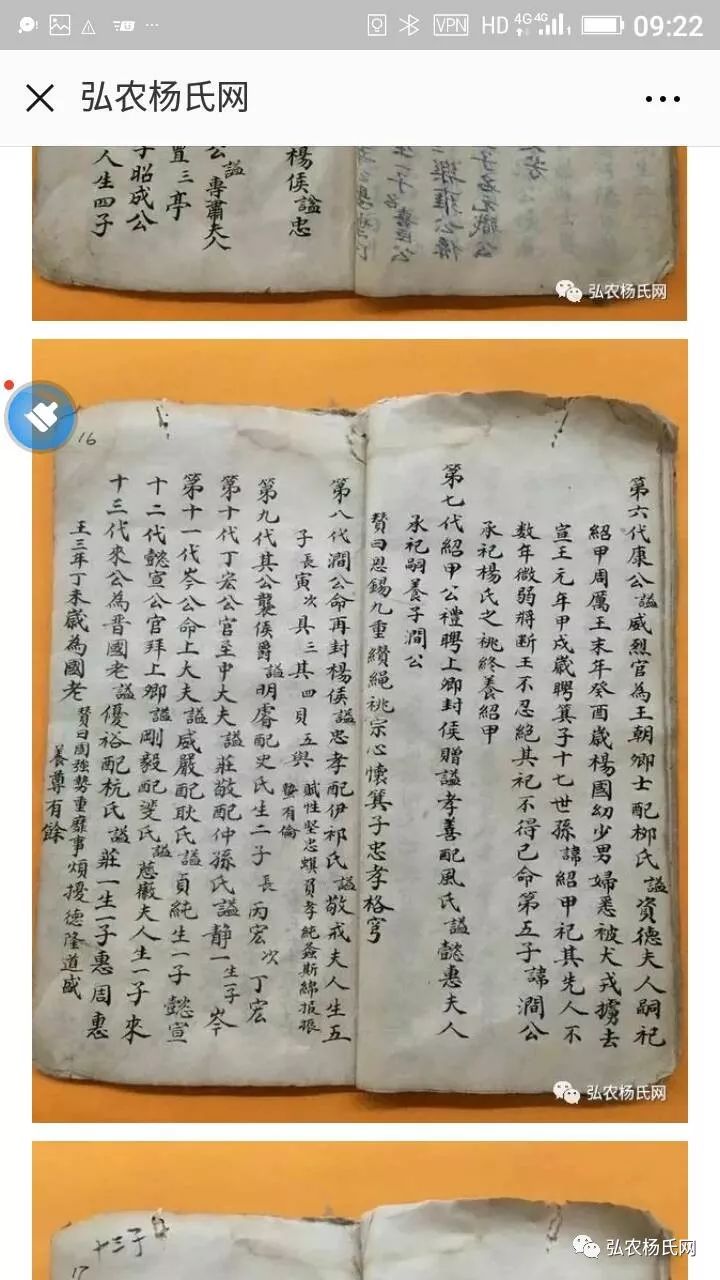 4G 4G
VPN
HD
1
09:22
弘农杨氏网
楊侯諡忠
公諡專肅夫人
置三亭
子昭成公
人生四子
弘农杨氏网
第六代康公諡威烈官為王朝卿士配柳氏諡資德夫人嗣祀
紹甲周厲王末年癸酉歲楊國幼少男婦悉被犬戎擄去
宣王元年甲戌歲聘箕子十七世孫諱紹甲祀其先人不
数年微弱將断王不忍絕其祀不得已命第五子諱澗公
承祀楊氏之祧終養紹甲
第七代紹甲公禮聘上卿封侯贈諡孝善配風氏諡懿惠夫人
承祀嗣養子澗公
贊曰恩錫九重纘繩祧宗心懷箕子忠孝格穹
16
第八代澗公命再封楊侯諡忠孝配伊祁氏諡敬戒夫人生五
子長寅次具三其四貝五與
賦性堅忠蟆員孝純螽斯綿振振
蟄有倫
第九代其公襲侯爵諡明睿配史氏生二子長丙宏次丁宏
第十代丁宏公官至中大夫諡莊敬配仲孫氏諡静一生一子岺
第十一代岺公命上大夫諡威嚴配耿氏諡貞純生一子懿宣
十二代懿宣公官拜上卿諡剛毅配斐氏諡慈徽夫人生一子來
十三代來公為晋國老諡優裕配杭氏諡莊一生一子惠周惠
王三年丁未歲為國老
贊曰周強勢重靡事煩擾德隆道盛
養尊有餘
弘农杨氏网
十三于
17
弘农杨氏网